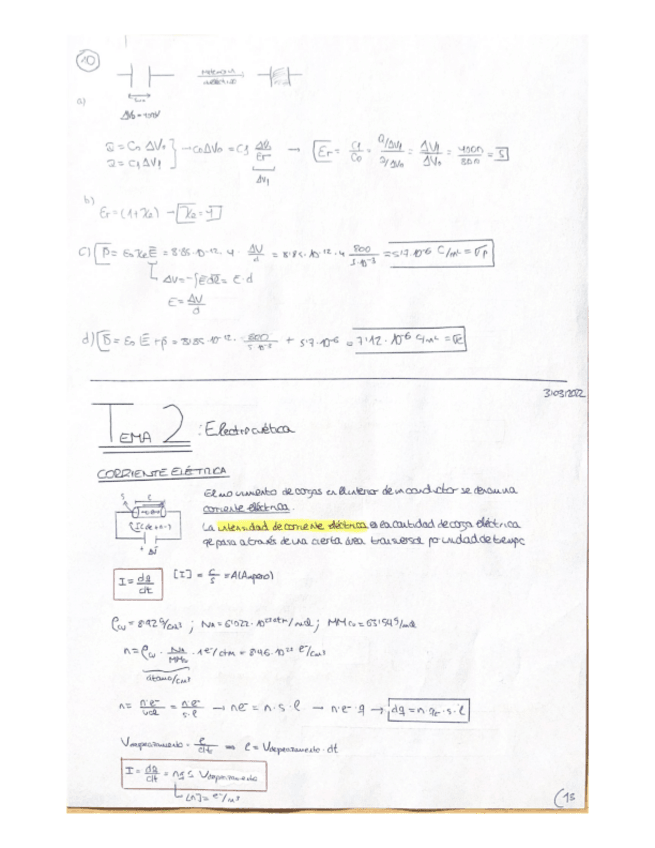 10
a)
Q = C₀ ΔV₀
Q = C₁ ΔV₁ → C₀ΔV₀ = C₁ ΔV₀/Er → Er = C₁/C₀ =
ΔV₁
b)
Er = (1+Xe) → Xe = 4
c) P = ε₀ Xe E = 8'85·10⁻¹² · 4 · ΔV/d = 8'85·10⁻¹² · 4 800/5·10⁻³ = 5'7·10⁻⁶ C/m² = σp
ΔV = -∫E dl = E·d
E = ΔV/d
d) D = ε₀ E + P = 8'85·10⁻¹² · 800/5·10⁻³ + 5'7·10⁻⁶ = 7'12·10⁻⁶ C/m²
31/03/2022
TEMA 2 : Electrocinética
CORRIENTE ELÉTRICA
El movimiento de cargas en el interior de un conductor se denomina
corriente eléctrica.
La intensidad de corriente eléctrica es la cantidad de carga eléctrica
que pasa a través de una cierta área transversal por unidad de tiempo
I = dq/dt [I] = C/s = A (Ampero)
n = ρcu · NA/MMcu · 1 e⁻/atm = 8'46·10²² e⁻/cm³
átomo/cm³
n = nºe⁻/vol = nºe⁻/s·l → nºe⁻ = n·s·l → nºe⁻·q → dq = n·qe·s·l
Vdesplazamiento = l/dt ⇒ l = Vdesplazamiento · dt
I = dq/dt = nqs Vdesplazamiento
[n] = e⁻/m³
15